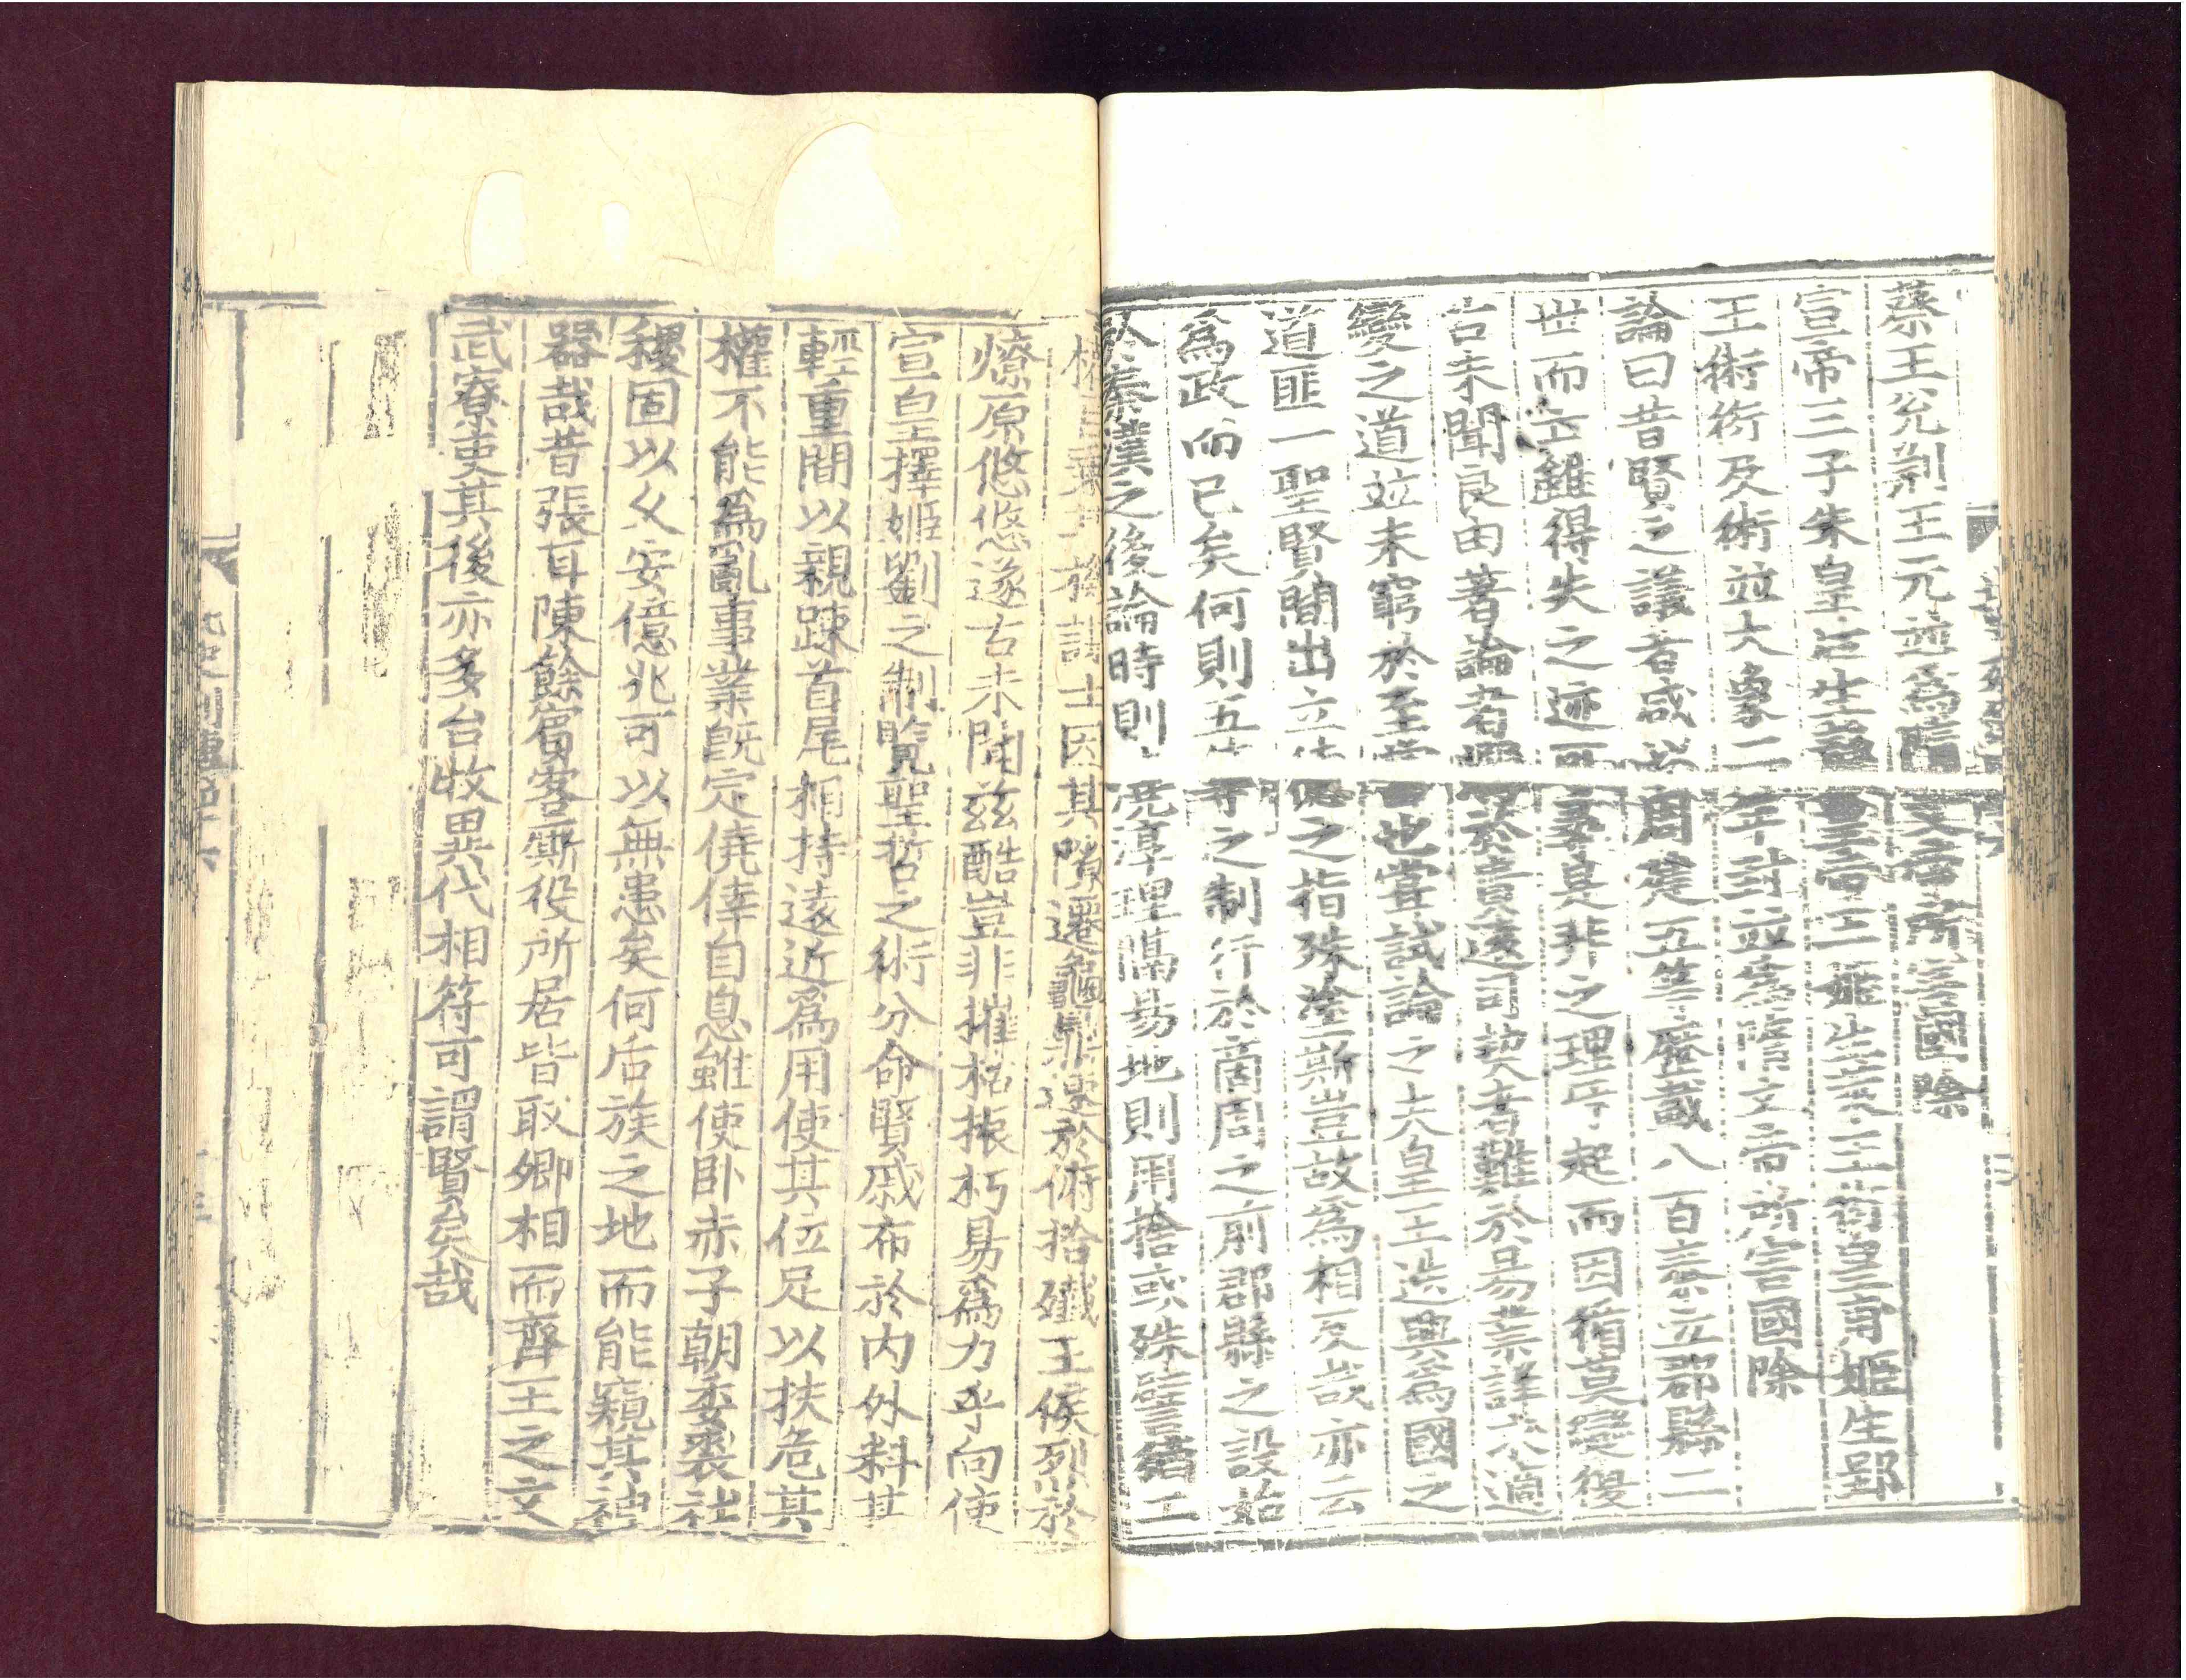 蔡王兊荆王元並爲隋文帝所害國除
宣帝三子朱皇后生静皇帝王姬生萊王衎皇甫姬生郢
王術衎及術並大象二年封並爲隋文帝所害國除
論曰昔賢之議者咸以周建五等歷載八百秦立郡縣二
世而亡雖得失之迹可尋是非之理互起而因循莫變復
古未聞良由著論者溺於貴逺司契者難於易業詳求適
變之道並未窮於至當也嘗試論之夫皇王迭興爲國之
道匪一聖賢間出立德之指殊塗斯豈故爲相反哉亦云
爲政而已矣何則五等之制行於商周之前郡縣之設始
於秦漢之後論時則澆淳理隔易地則用捨或殊譬猶工
因其隙遷龜鼎速於俯拾殲王侯烈於
燎原悠悠遂古未聞兹酷豈非摧枯振朽易爲力乎向使
宣皇擇姬劉之制覽聖哲之術分命賢戚布於内外料其
輕重間以親踈首尾相持逺近爲用使其位足以扶危其
權不能爲亂事業旣定僥倖自息雖使卧赤子朝委裘社
稷固以久安億兆可以無患矣何后族之地而能窺其神
器哉昔張耳陳餘賔客廝役所居皆取卿相而齊王之文
武寮吏其後亦多台牧異代相符可謂賢矣哉